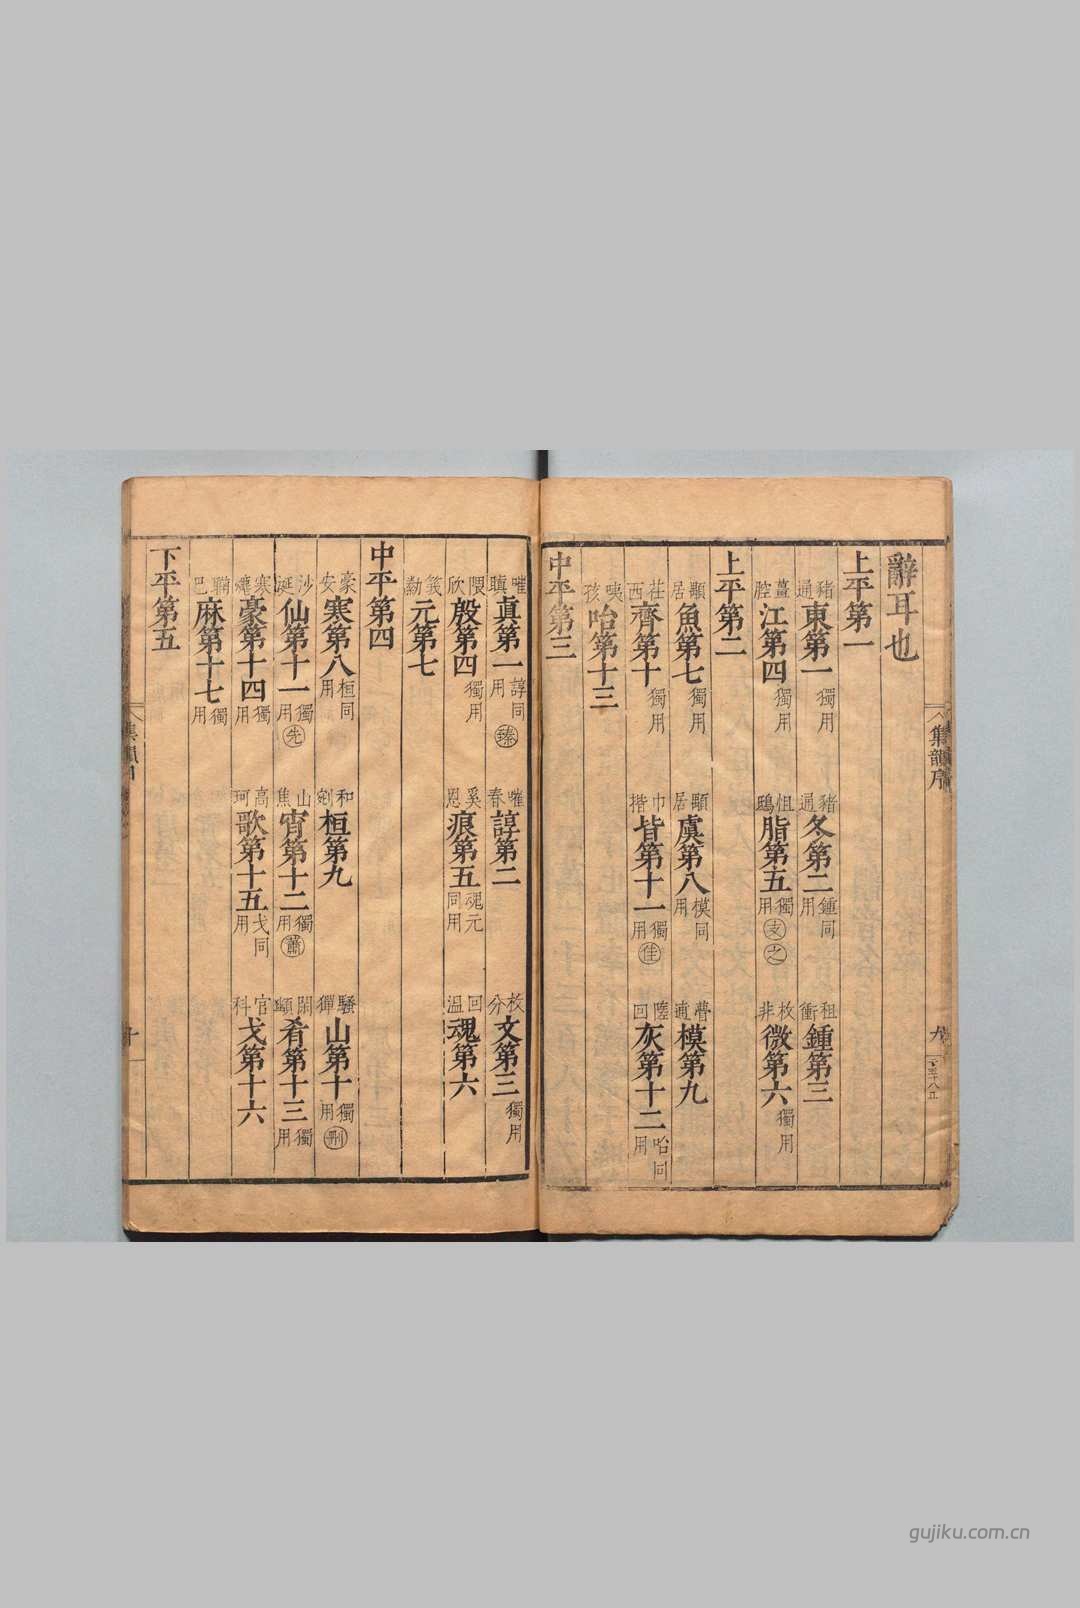 辭耳也
上平第一
豬通東第一獨用 豬通冬第二鍾同用 租衝鍾第三
薑腔江第四獨用 怚鴟脂第五獨用支之 枚非微第六獨用
上平第二
顒居魚第七獨用 顒居虞第八模同用 模第九
茌西齊第十獨用 巾揩皆第十一獨用佳 陸回灰第十二咍同用
咦孩咍第十三
中平第三
集韻序
九
嗔眞第一諄同用臻 春諄第二 枚分文第三獨用
隈欣殷第四獨用 奚恩痕第五魂元同用 回溫魂第六
元第七
中平第四
豪安寒第八桓同用 和剜桓第九 騷山第十獨用刪
沙涎仙第十一獨用先 山焦宵第十二獨用蕭 肴第十三獨用
寒豪第十四獨用 高珂歌第十五戈同用 官科戈第十六
巴麻第十七獨用
下平第五
集韻
十
gujiku.com.cn